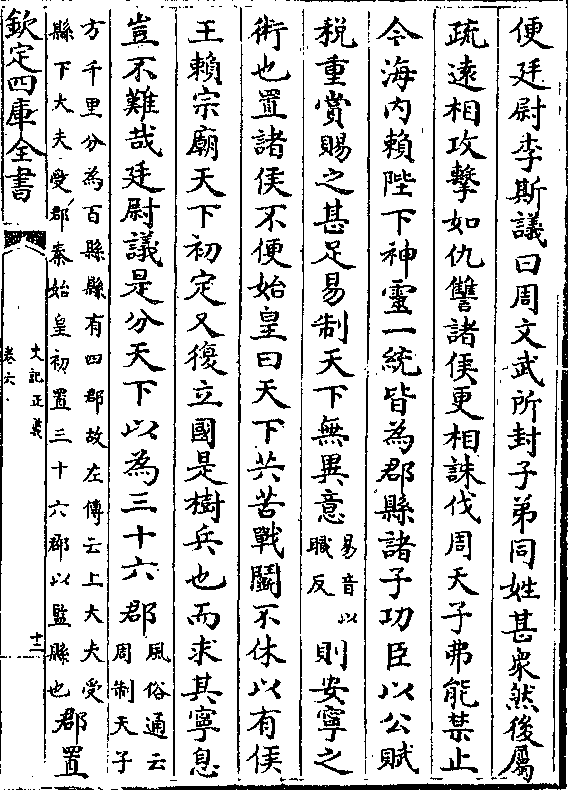 便廷尉李斯議曰周文武所封子弟同姓甚衆然後屬
疏逺相攻擊如仇讐諸侯更相誅伐周天子弗能禁止
今海内賴陛下神靈一統皆為郡縣諸子功臣以公賦
税重賞賜之甚足易制天下無異意易音以
職反則安寧之
術也置諸侯不便始皇曰天下共苦戰鬬不休以有侯
王賴宗廟天下初定又復立國是樹兵也而求其寧息
豈不難哉廷尉議是分天下以為三十六郡風俗通云
周制天子
方千里分為百縣縣有四郡故左傳云上大夫受
縣下大夫受郡秦始皇初置三十六郡以監縣也郡置
欽定四庫全書
史記正義
卷六
十二